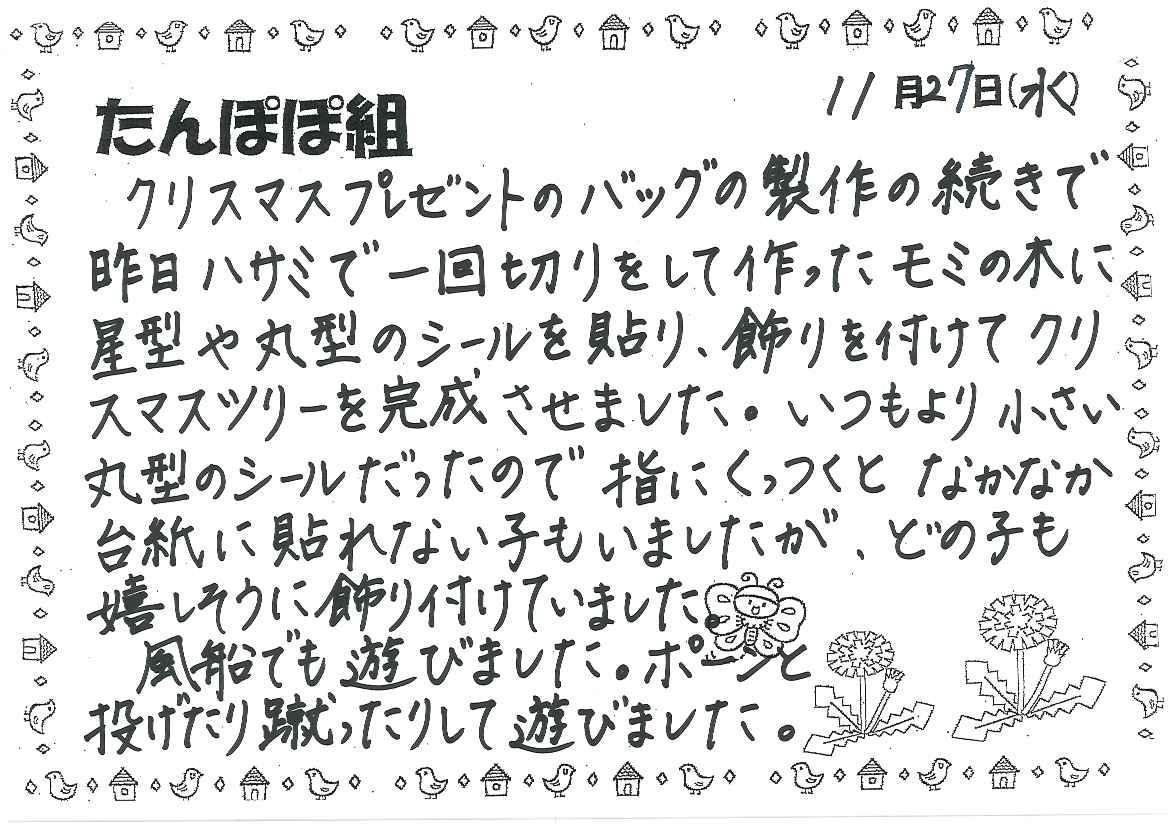 11月27日(水)
たんぽぽ組
クリスマスプレゼントのバッグの製作の続きで
昨日ハサミで一回切りをして作ったモミの木に
星型や丸型のシールを貼り、飾りを付けてクリ
スマスツリーを完成させました。いつもより小さい
丸型のシールだったので指にくっつくとなかなか
台紙に貼れない子もいましたが、どの子も
嬉しそうに飾り付けていました。
風船でも遊びました。ポーンと
投げたり蹴ったりして遊びました。